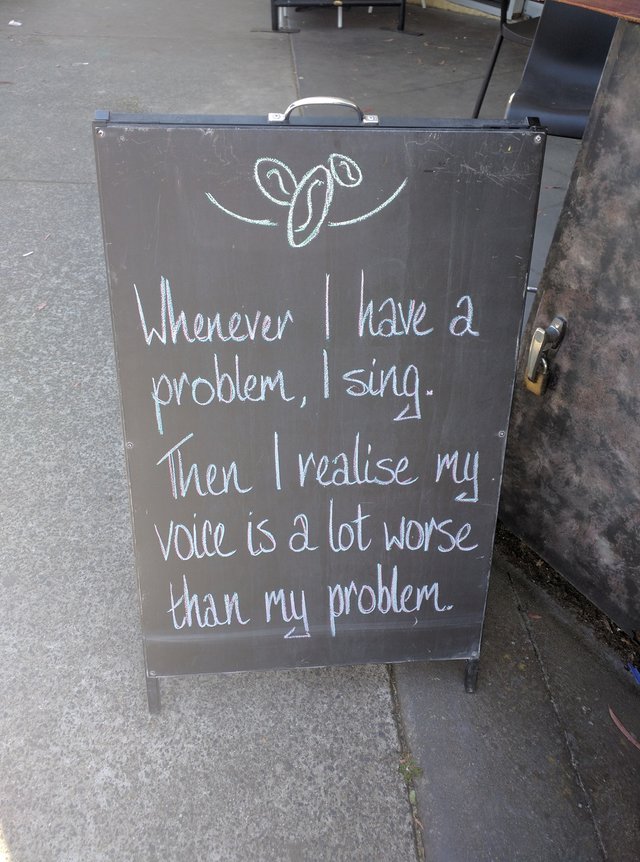 Whenever I have a
problem, I sing.
Then I realise my
voice is a lot worse
than my problem.